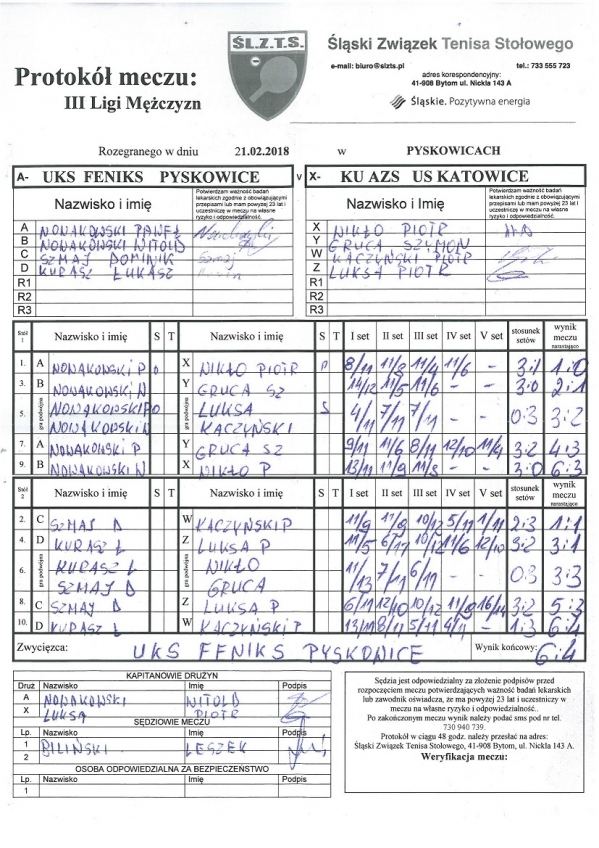 ŚL.Z.T.S.
Śląski Związek Tenisa Stołowego
e-mail: biuro@slzts.pl tel.: 733 555 723
adres korespondencyjny:
41-908 Bytom ul. Nickla 143 A
Śląskie. Pozytywna energia
Protokół meczu:
III Ligi Mężczyzn
Rozegranego w dniu 21.02.2018 w PYSKOWICACH
A- UKS FENIKS PYSKOWICE v X- KU AZS US KATOWICE
Nazwisko i Imię Potwierdzam ważność badań lekarskich zgodnie z obowiązującymi przepisami lub mam powyżej 23 lat i uczestniczę w meczu na własne ryzyko i odpowiedzialność. Nazwisko i Imię Potwierdzam ważność badań lekarskich zgodnie z obowiązującymi przepisami lub mam powyżej 23 lat i uczestniczę w meczu na własne ryzyko i odpowiedzialność.
A NOWAKOWSKI PAWEŁ X NIKŁO PIOTR
B NOWAKOWSKI WITOLD Y GRUCA SZYMON
C SZMAJ DOMINIK W KACZYŃSKI PIOTR
D KURASZ ŁUKASZ Z LUKSA PIOTR
R1 R1
R2 R2
R3 R3
Stół 1 Nazwisko i imię S T Nazwisko i imię S T I set II set III set IV set V set stosunek setów wynik meczu narastająco
1. A NOWAKOWSKI P X NIKŁO PIOTR 8/11 11/8 11/4 11/6 - 3:1 1:0
3. B NOWAKOWSKI W Y GRUCA SZ 14/12 11/5 11/6 - - 3:0 2:1
5. gra podwójna NOWAKOWSKI P LUKSA S 4/11 7/11 7/11 - - 0:3 3:2
NOWAKOWSKI W KACZYŃSKI
7. A NOWAKOWSKI P Y GRUCA SZ 9/11 11/6 8/11 12/10 11/4 3:2 4:3
9. B NOWAKOWSKI W X NIKŁO P 13/11 11/9 11/8 - - 3:0 6:3
Stół 2 Nazwisko i imię S T Nazwisko i imię S T I set II set III set IV set V set stosunek setów wynik meczu narastająco
2. C SZMAJ D W KACZYŃSKI P 11/9 10/12 5/11 1/11 2:3 1:1
4. D KURASZ Ł Z LUKSA P 11/5 6/11 10/12 11/6 12/10 3:2 3:1
6. gra podwójna KURASZ Ł NIKŁO 11/13 7/11 6/11 - - 0:3 3:3
SZMAJ D GRUCA
8. C SZMAJ D Z LUKSA P 6/11 12/10 10/12 11/9 16/14 3:2 5:3
10. D KURASZ Ł W KACZYŃSKI P 13/11 8/11 5/11 9/11 - 1:3 6:4
Zwycięzca: UKS FENIKS PYSKOWICE Wynik końcowy: 6:4
KAPITANOWIE DRUŻYN
Druż Nazwisko Imię Podpis
A NOWAKOWSKI WITOLD
X LUKSA PIOTR
SĘDZIOWIE MECZU
Lp. Nazwisko Imię Podpis
1 BILIŃSKI LESZEK
2
OSOBA ODPOWIEDZIALNA ZA BEZPIECZEŃSTWO
Lp. Nazwisko Imię Podpis
1
Sędzia jest odpowiedzialny za złożenie podpisów przed
rozpoczęciem meczu potwierdzających ważność badań lekarskich
lub zawodnik oświadcza, że ma powyżej 23 lat i uczestniczy w
meczu na własne ryzyko i odpowiedzialność..
Po zakończonym meczu wynik należy podać sms pod nr tel.
730 940 739.
Protokół w ciągu 48 godz. należy przesłać na adres:
Śląski Związek Tenisa Stołowego, 41-908 Bytom, ul. Nickla 143 A.
Weryfikacja meczu: